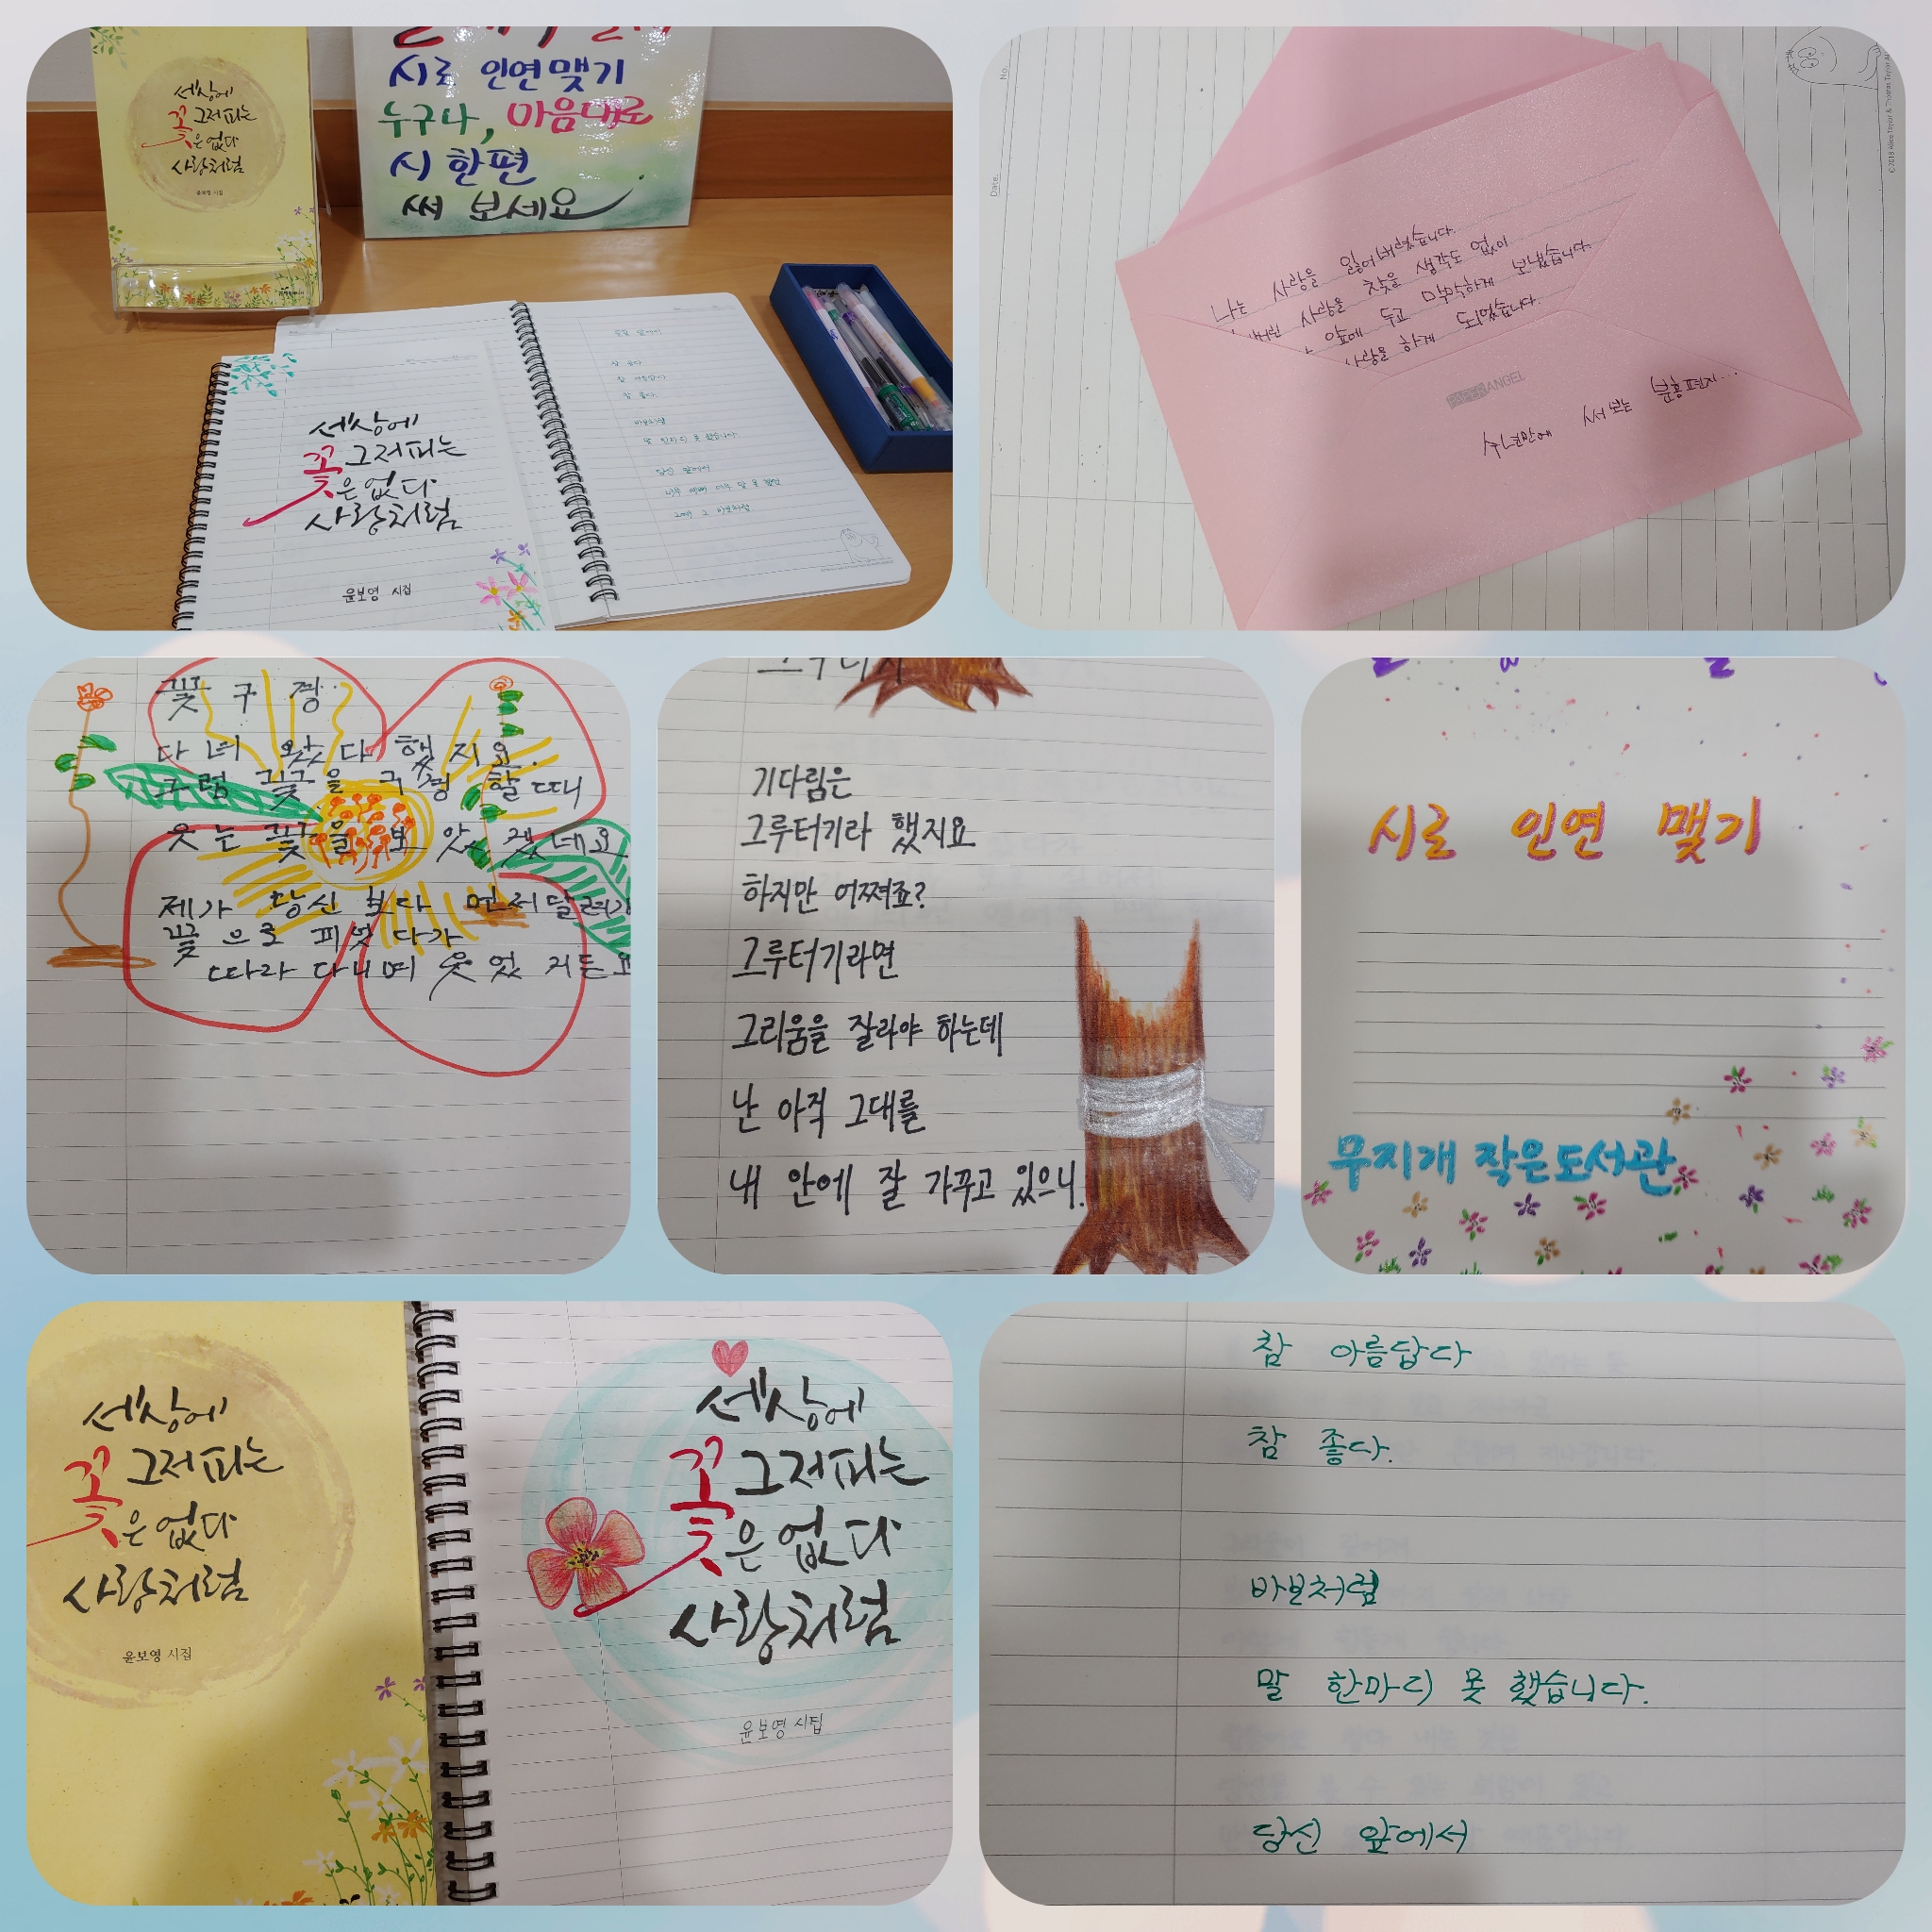 세상에
꽃 그저 피는
은 없다
사랑처럼
윤보영 시집
시로 인연 맺기
누구나, 마음대로
시 한편
써 보세요
세상에
꽃 그저 피는
은 없다
사랑처럼
윤보영 시집
참 좋다
참 아름답다
참 좋다.
바보처럼
말 한마디 못 했습니다.
당신 앞에서
No.
Date.
나는 사랑을 잃어버렸습니다.
사랑을 찾을 생각도 없이
앞에 두고 막막하게 보냈습니다.
사랑을 하게 되었습니다.
PAPER ANGEL
써보는 분홍편지...
꽃구경
다녀 왔다 했지요.
그럼 꽃을 구경 할 때
웃는 꽃을 보았겠네요
제가 당신 보다 먼저 달려가
꽃으로 피었다가
따라 다니며 웃었거든요
기다림은
그루터기라 했지요
하지만 어쩌죠?
그루터기라면
그리움을 잘라야 하는데
난 아직 그대를
내 안에 잘 가꾸고 있으니.
시로 인연 맺기
무지개 작은도서관
세상에
꽃 그저 피는
은 없다
사랑처럼
윤보영 시집
세상에
꽃 그저 피는
은 없다
사랑처럼
윤보영 시집
참 아름답다
참 좋다.
바보처럼
말 한마디 못 했습니다.
당신 앞에서